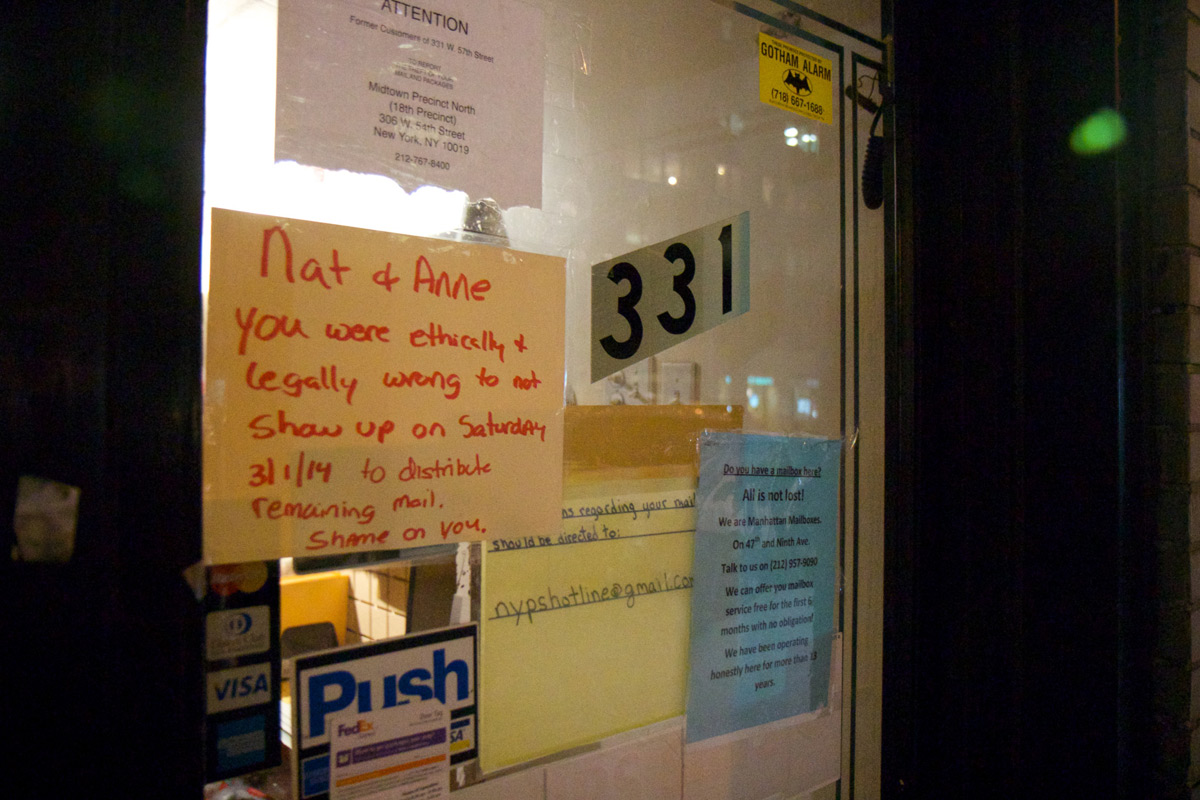 ATTENTION
Former Customers of 331 W. 57th Street
TO REPORT
MAIL AND PACKAGES
Midtown Precinct North
(18th Precinct)
306 W. 54th Street
New York, NY 10019
212-767-8400
GOTHAM ALARM
(718) 667-1688
331
Nat & Anne
You were ethically &
legally wrong to not
show up on Saturday
3/1/14 to distribute
remaining mail.
Shame on you.
regarding your mail
should be directed to:
nypshotline@gmail.com
Do you have a mailbox here?
All is not lost!
We are Manhattan Mailboxes.
On 47th and Ninth Ave.
Talk to us on (212) 957-9090
We can offer you mailbox
service free for the first 6
months with no obligation!
We have been operating
honestly here for more than
years.
VISA
Push
FedEx